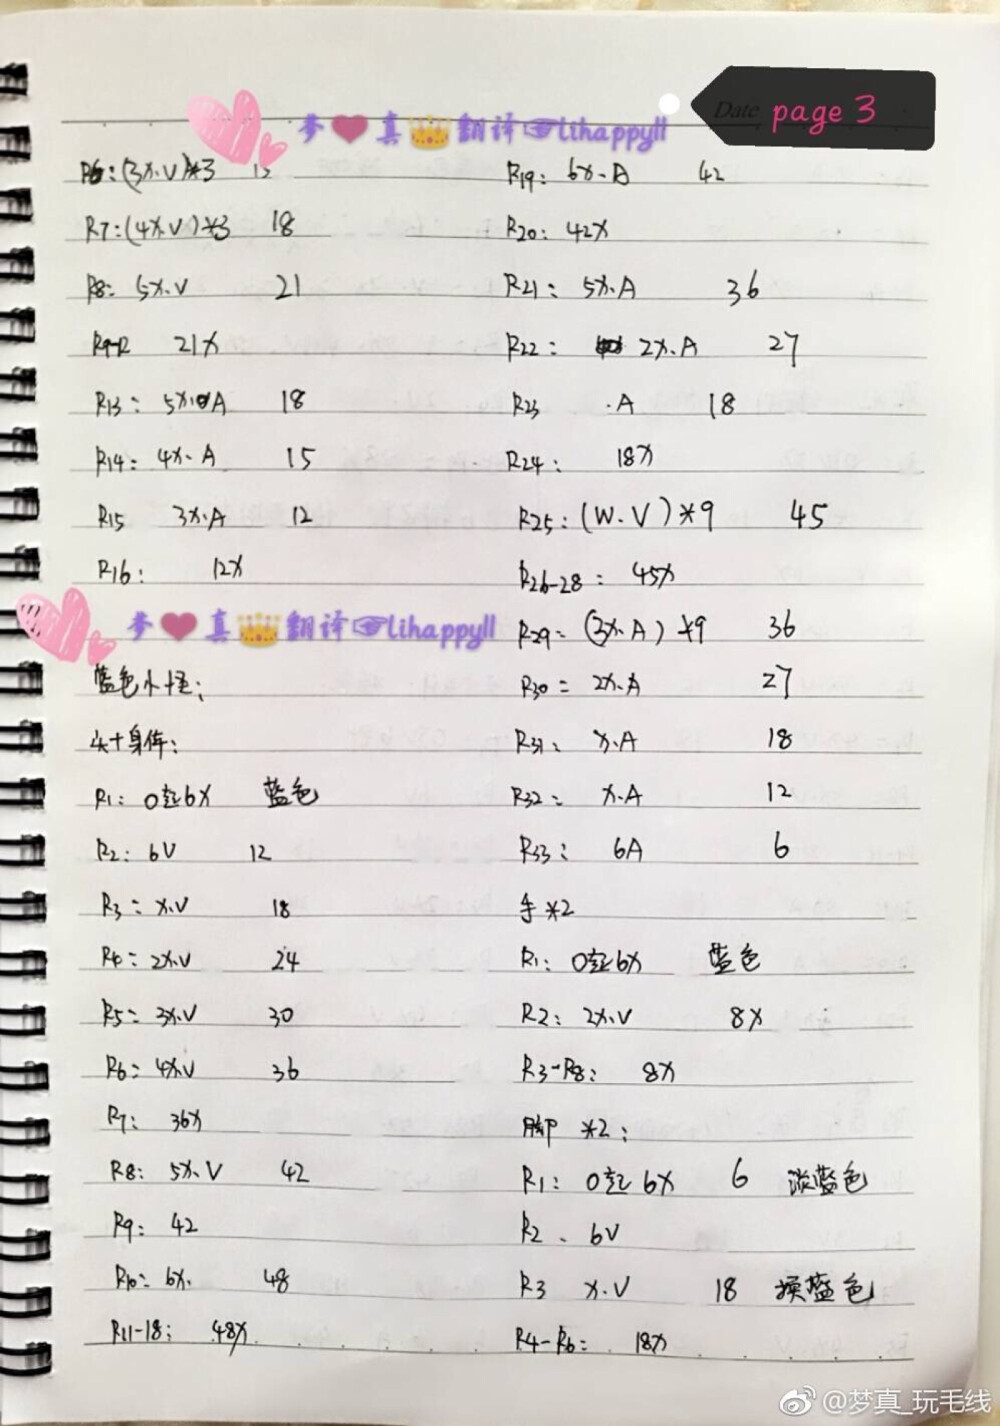 page 3
Date
梦❤真👑翻译☞lihappyll
R6:(3X.V)*3 15
R7:(4X.V)*3 18
R8: 5X.V 21
R9-12 21X
R13: 5X.A 18
R14: 4X.A 15
R15 3X.A 12
R16: 12X
梦❤真👑翻译☞lihappyll
蓝色小怪:
头+身体:
R1: 0起6X 蓝色
R2: 6V 12
R3: X.V 18
R4: 2X.V 24
R5: 3X.V 30
R6: 4X.V 36
R7: 36X
R8: 5X.V 42
R9: 42
R10: 6X. 48
R11-18: 48X.
R19: 6X.A 42
R20: 42X
R21: 5X.A 36
R22: 2X.A 27
R23 .A 18
R24: 18X
R25: (W.V)*9 45
R26-28: 45X
R29: (3X.A)*9 36
R30: 2X.A 27
R31: X.A 18
R32: X.A 12
R33: 6A 6
手*2
R1: 0起6X 蓝色
R2: 2X.V 8X
R3-R8: 8X
脚*2:
R1: 0起6X 6 淡蓝色
R2. 6V
R3 X.V 18 换蓝色
R4-R6: 18X
@梦真_玩毛线